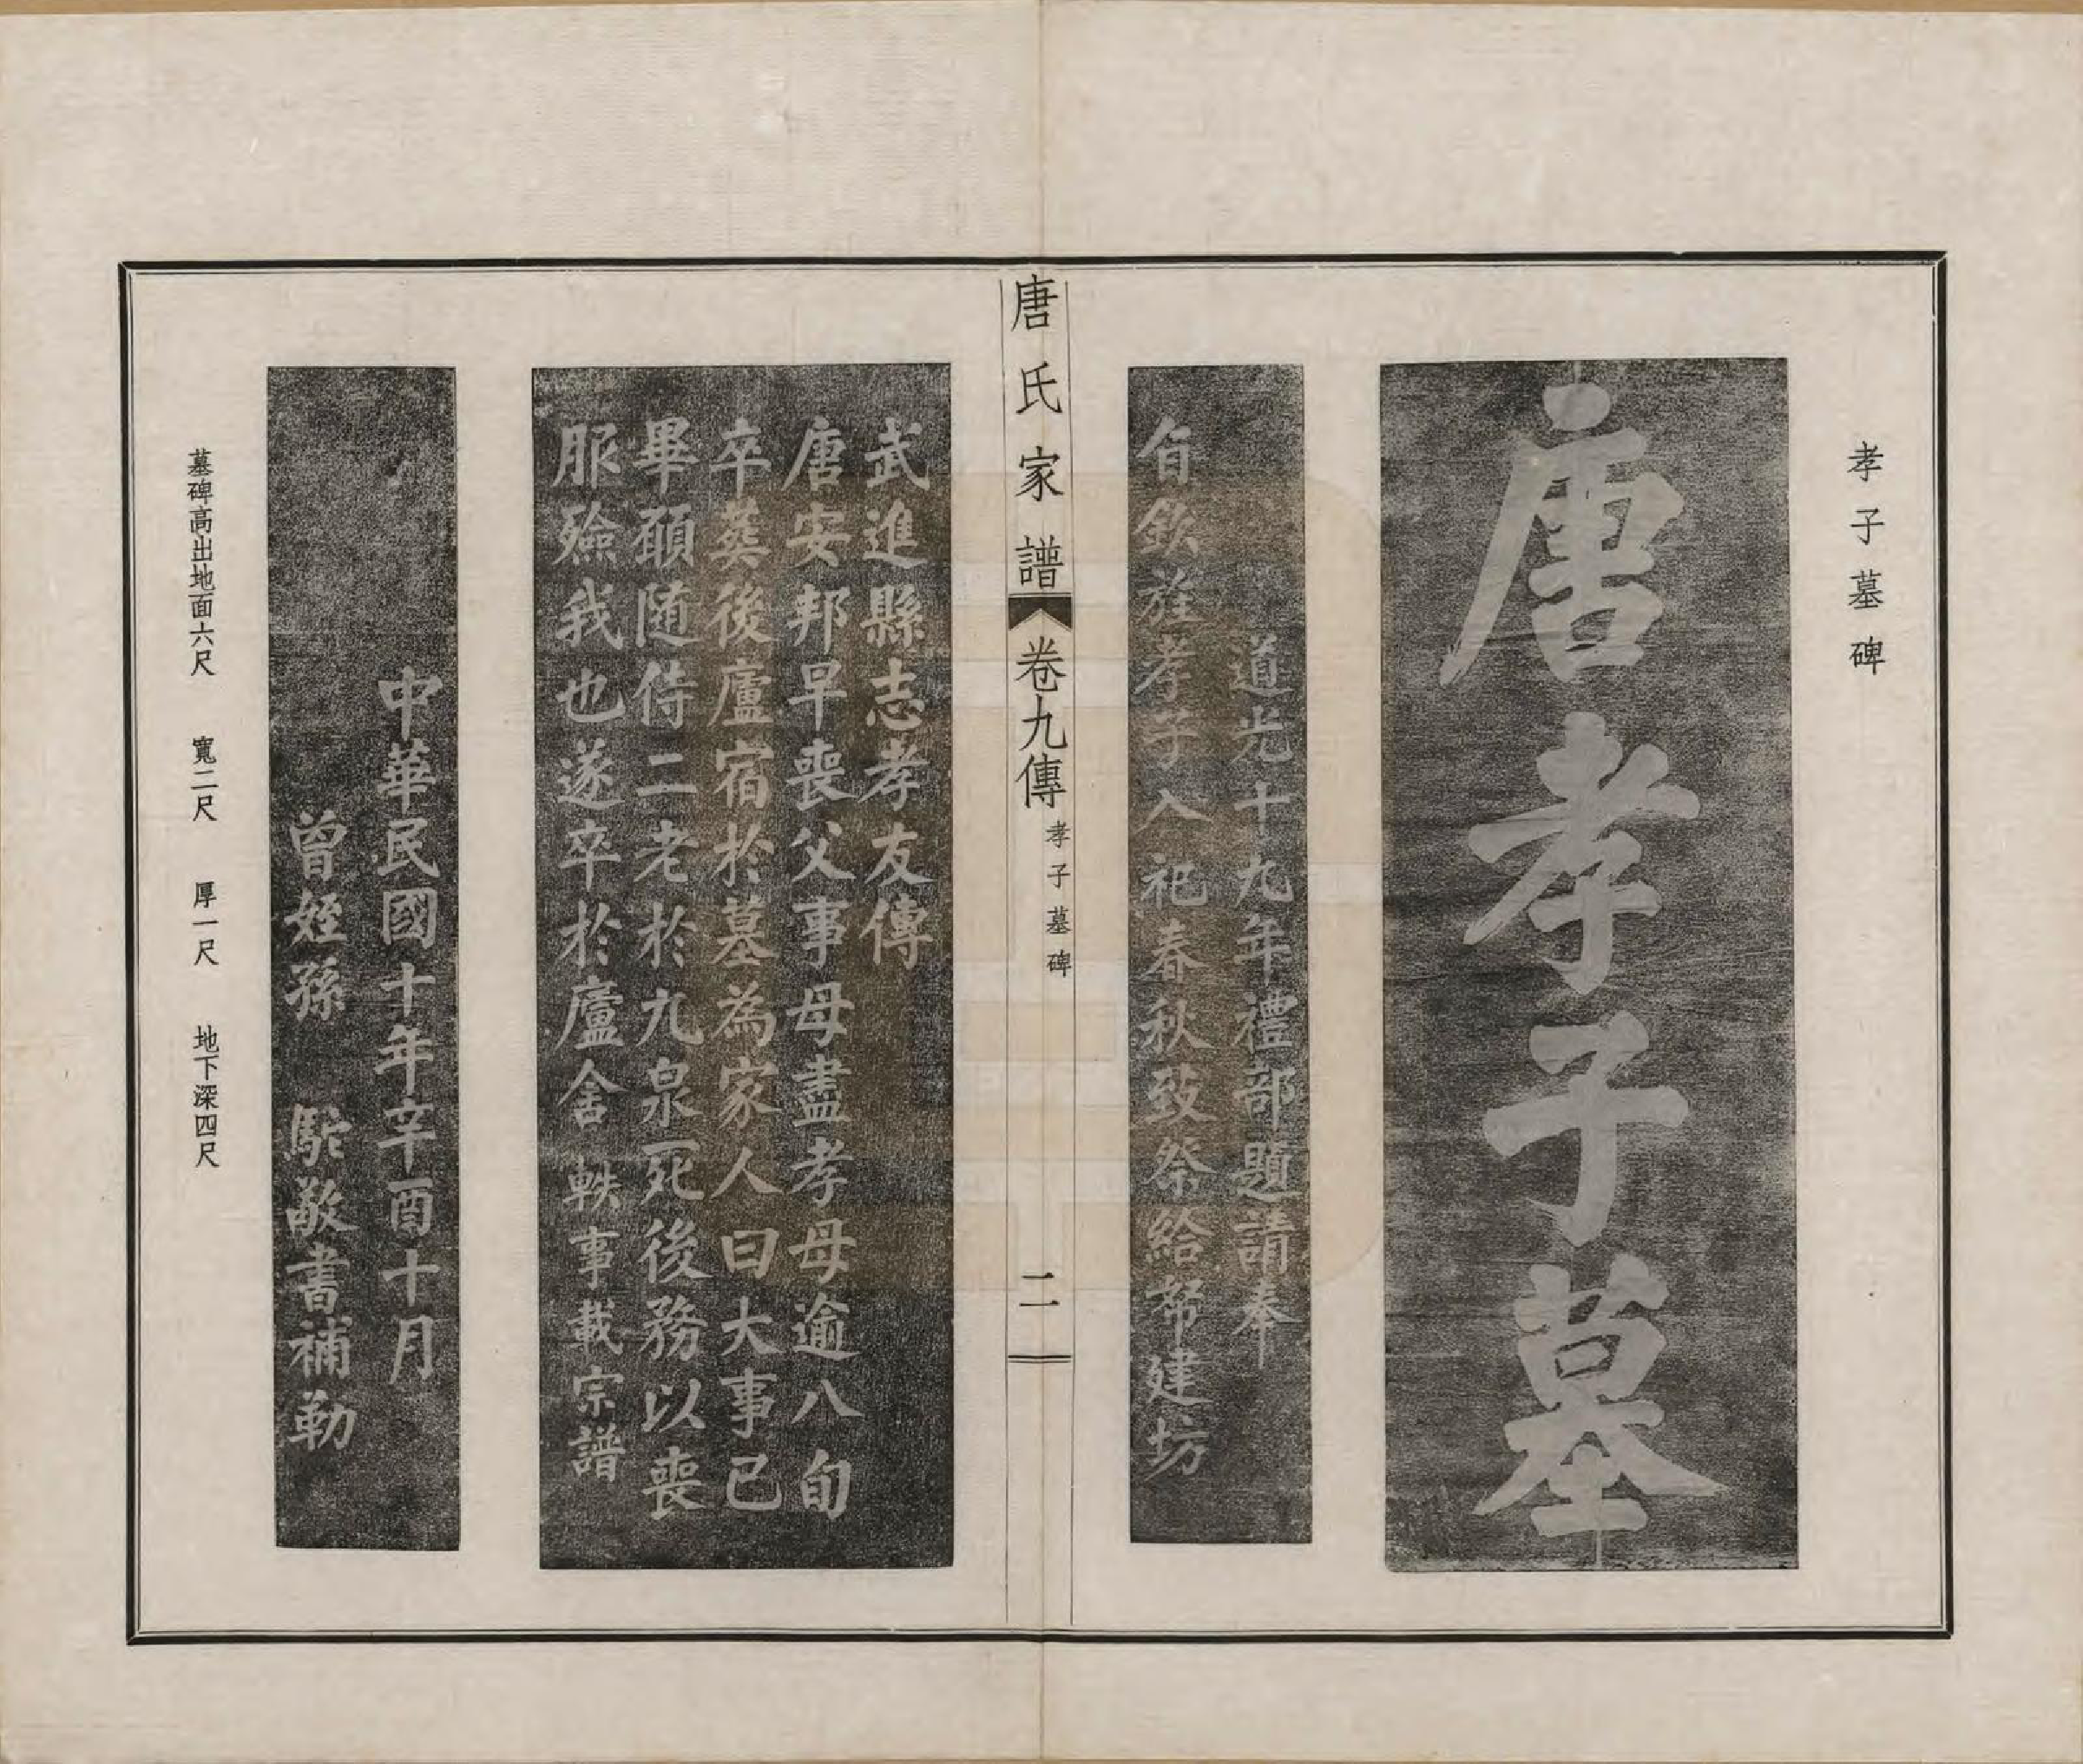 孝子墓碑
唐孝子墓
道光十九年禮部題請奉
旨欽旌孝子入祀春秋致祭給帑建坊
唐氏家譜
卷九傳
孝子墓碑
二
武進縣志孝友傳
唐安邦早喪父事母盡孝母逾八旬
卒葬後廬宿於墓為家人曰大事已
畢願随侍二老於九泉死後務以喪
服殮我也遂卒於廬舍 軼事載宗譜
中華民國十年辛酉十月
曾姪孫 駝敬書補勒
墓碑高出地面六尺 寬二尺 厚一尺 地下深四尺